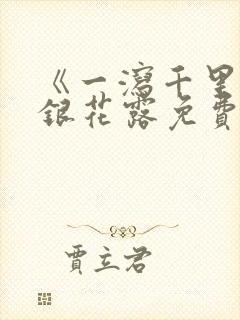 《一瀉千里
銀花露免費
賈立君